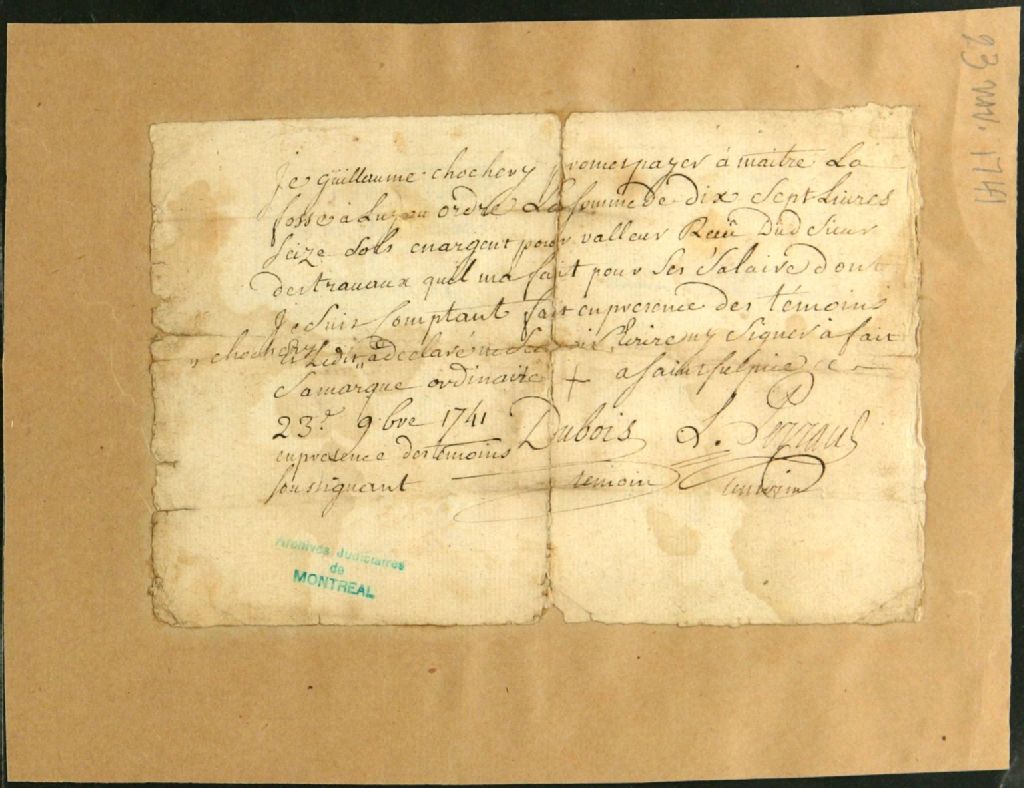 23 nov. 1741
Je guillaume chochery promes payer à maitre La
fosse à Luy ou ordre La somme de dix Sept Livres
Seize Sols en argent pour valleur Recû Dud Sieur
des travaux quil ma fait pour Ses Salaire dont
Je Suis Comptant fait en presence des témoins
"chochery Et Ledit " a declaré ne Ecrire ny Signer a fait
Sa marque ordinaire + a saint sulpice ce
23.e 9.bre 1741
en presence des temoins Dubois L.
soussignant temoin temoin
Archives Judiciaires
de
MONTREAL